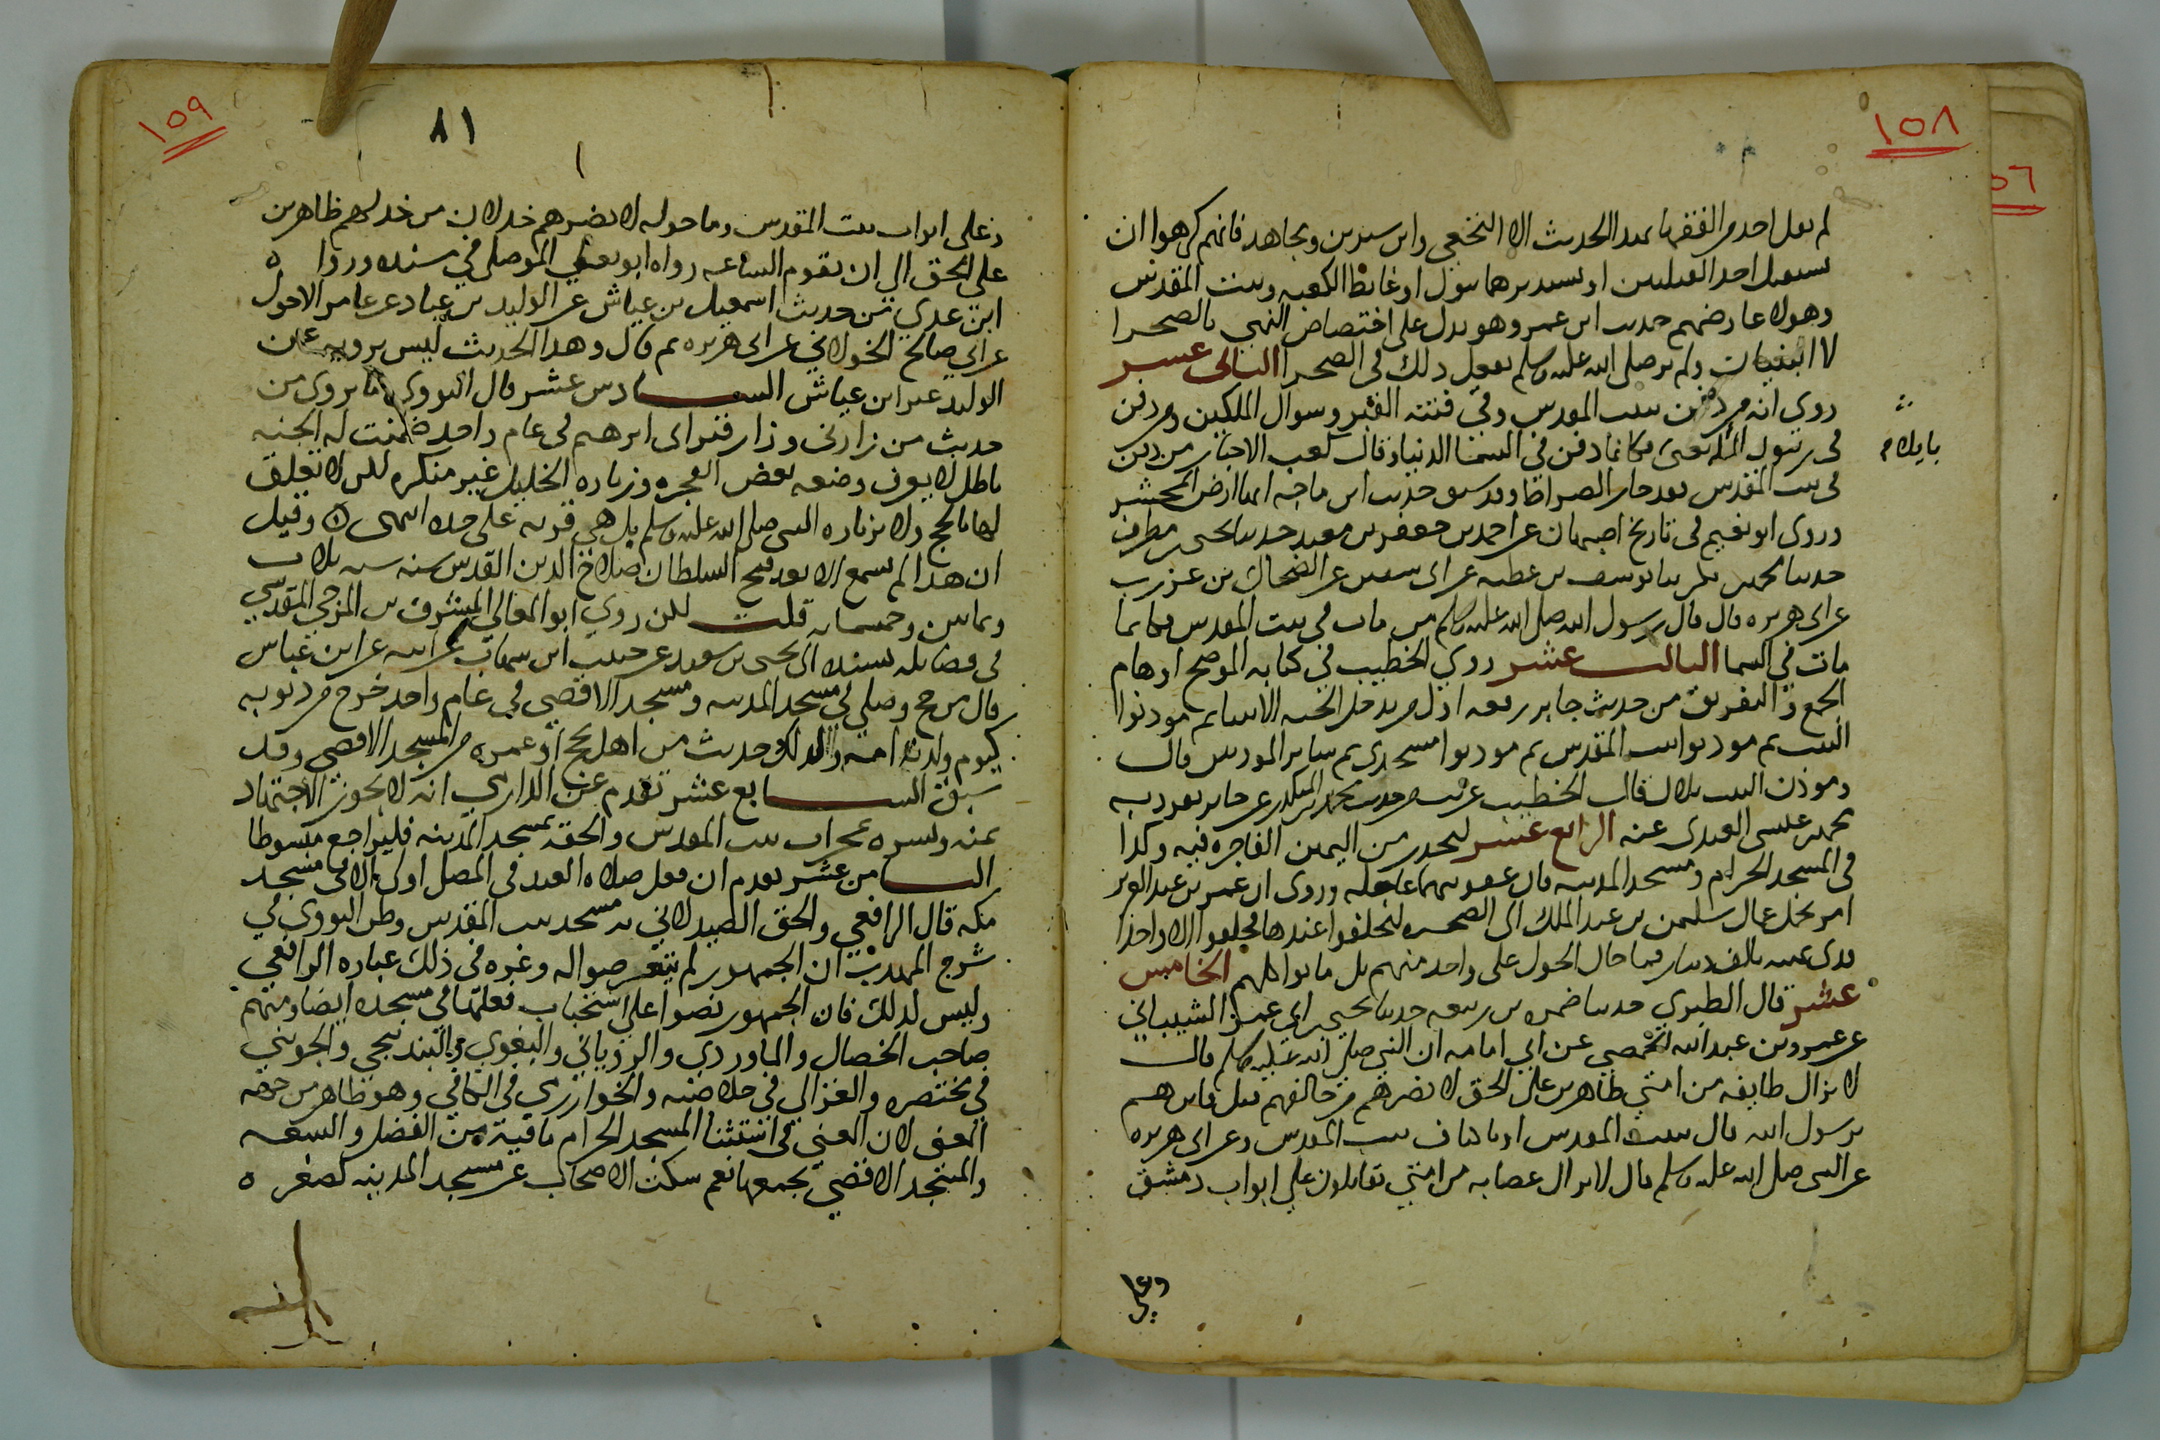 ١٥٨
٥٦
لم يقل احد من الفقهاء بهذا الحديث الا النخعي وابن سيرين ومجاهد فانهم كرهوا ان
يستقبل احد القبلتين او يستدبرهما ببول او غائط الكعبه وبيت المقدس
وهولا عارضهم حديث ابن عمر وهو يدل على اختصاص النهي بالصحرا
لا البنيان ولم ير صلى الله عليه وسلم يفعل ذلك في الصحرا الثاني عشر
روي انه من دفن ببيت المقدس وقي فتنة القبر وسوال الملكين ومن دفن
في زيتون المله يعني فكانما دفن في السما الدنيا وقال كعب الاحبار من دفن
في بيت المقدس فقد جاز الصراط وقد سبق حديث ابن ماجه انها ارض المحشر
وروى ابو نعيم في تاريخ اصبهان عن احمد بن جعفر بن معبد حدثنا يحيى بن مطرف
حدثنا محمد بن بكر ثنا يوسف بن عطيه عن ابي سنان عن الضحاك بن عرزب
عن ابي هريره قال قال رسول الله صلى الله عليه وسلم من مات في بيت المقدس فكانما
مات في السما الثالث عشر روي الخطيب في كتابه الموضح اوهام
الجمع والتفريق من حديث جابر رفعه اول من يدخل الجنه الانبيا ثم موذنوا
البيت ثم موذنوا بيت المقدس ثم موذنوا مسجدي ثم ساير الموذنين قال
وموذن البيت بلال قال الخطيب غريب من حديث محمد بن المنكدر عن جابر تفرد به
محمد بن عيسى العبدي عنه الرابع عشر ليحذر من اليمين الفاجره فيه وكذا
في المسجد الحرام ومسجد المدينه فان عقوبتهما عاجله وروى ان عمر بن عبد العزيز
امر بحمل عمال سليمن بن عبد الملك الى الصخره ليحلفوا عندها فحلفوا الا واحدا
فدى يمينه بالف دينار فما حال الحول على واحد منهم بل ماتوا كلهم الخامس
عشر قال الطبري حدثنا ضمره بن ربيعه حدثنا يحيى بن ابي عمرو الشيباني
عن عمرو بن عبد الله الحمصي عن ابي امامه ان النبي صلى الله عليه وسلم قال
لا تزال طايفه من امتي ظاهرين على الحق لا يضرهم من خالفهم قيل فاين هم
يرسول الله قال ببيت المقدس او باكناف بيت المقدس وعن ابي هريره
عن النبي صلى الله عليه وسلم قال لا تزال عصابه من امتي يقاتلون على ابواب دمشق
وعلى
١٥٩
٨١
وعلى ابواب بيت المقدس وما حوله لا يضرهم خذلان من خذلهم ظاهرين
على الحق الى ان تقوم الساعه رواه ابو يعلي الموصلي في مسنده ورواه
ابن عدي من حديث اسمعيل بن عياش عن الوليد بن عباد عن عامر الاحول
عن ابي صالح الخولاني عن ابي هريره ثم قال وهذا الحديث ليس يرويه عن
الوليد غير ابن عياش السادس عشر قال النووي ما يروى من
حديث من زارني وزار قبر ابي ابرهيم في عام واحد ضمنت له الجنه
باطل لا يعرف وضعه بعض الفجره وزياره الخليل غير منكره لكن لا تعلق
لها بالحج ولا بزياره النبي صلى الله عليه وسلم بل هي قربه على حده انتهى وقيل
ان هذا لم يسمع الا بعد فتح السلطان صلاح الدين القدس سنه ثلاث
وثمانين وخمسمايه قلت لكن روي ابو المعالي المشرف بن المرجي المقدسي
في فضايله بسنده الى يحيى بن سعيد عن حبيب ابن شهاب عن ابيه عن ابن عباس
قال من حج وصلى في مسجد المدينه ومسجد الاقصى في عام واحد خرج من ذنوبه
كيوم ولدته امه وكذلك حديث من اهل بحج او عمره من المسجد الاقصى وقد
سبق السابع عشر تقدم عن الدارمي انه لا يجوز الاجتهاد
يمنه ويسره بمحراب بيت المقدس والحقه بمسجد المدينه فليراجع مبسوطا
الثامن عشر تقدم ان فعل صلاه العيد في المصلى اولى الا في مسجد
مكه قال الرافعي والحق الصيدلاني به مسجد بيت المقدس وظن النووي في
شرح المهذب ان الجمهور لم يتعرضوا له وغره في ذلك عباره الرافعي
وليس كذلك فان الجمهور نصوا على استحباب فعلها في مسجده ايضا ومنهم
صاحب الخصال والماوردي والروياني والبغوي والبندنيجي والجويني
في مختصره والغزالي في خلاصته والخوارزمي في الكافي وهو ظاهر من جهه
المعنى لان المعنى في استثنا المسجد الحرام ما فيه من الفضل والسعه
والمسجد الاقصى يجمعها نعم سكت الاصحاب عن مسجد المدينه لصغره